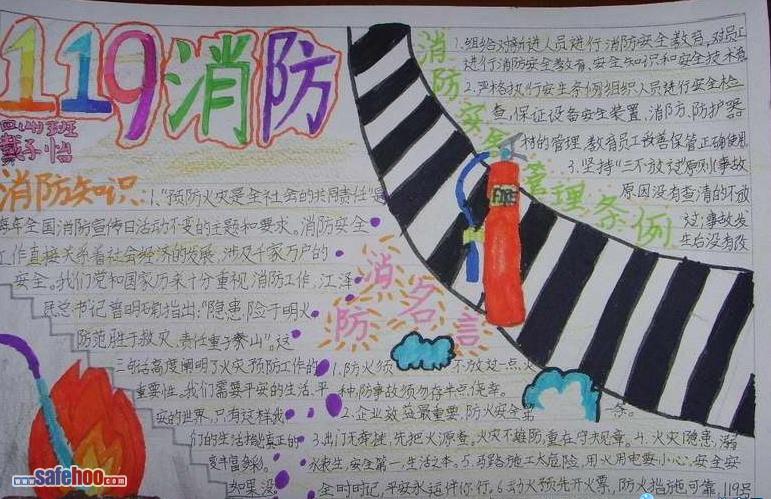 119消防
四(4)班
戴子怡
消防知识:
1、"预防火灾是全社会的共同责任"是
每年全国消防宣传日活动不变的主题和要求。消防安全
工作直接关系着社会经济的发展,涉及千家万户的
安全。我们党和国家历来十分重视消防工作,江泽
民总书记曾明确指出:"隐患险于明火,
防范胜于救灾,责任重于泰山"。这
三句话高度阐明了火灾预防工作的
重要性。我们需要平安的生活、平
安的世界,只有这样我
们的生活才能真正的
丰富多彩。
如果没
消防安全管理条例
1、组给对新进人员进行消防安全教育,对员工
进行消防安全教育、安全知识和安全技术
2、严格执行安生条例组织人员进行安全检
查,保证设备安全装置、消防、防护器
材的管理,教育员工妥善保管正确使用
3、坚持"三不放过"原则(事故
原因没有查清的不放
过;事故发
生后没有改
FIRE
消防名言
1、防火须 不放过一点火
种,防事故须勿存半点侥幸。
2、企业效益最重要,防火安全第一条。
3、出门无牵挂,先把火源查。火灾不难防,重在守规章。4、火灾隐患,
安全第一,生活之本。5、马路施工太危险,用火用电要小心,安全
全时时记,平安永远伴你行。6、动火预先开火票,防火措施可靠,119
www.safehoo.com